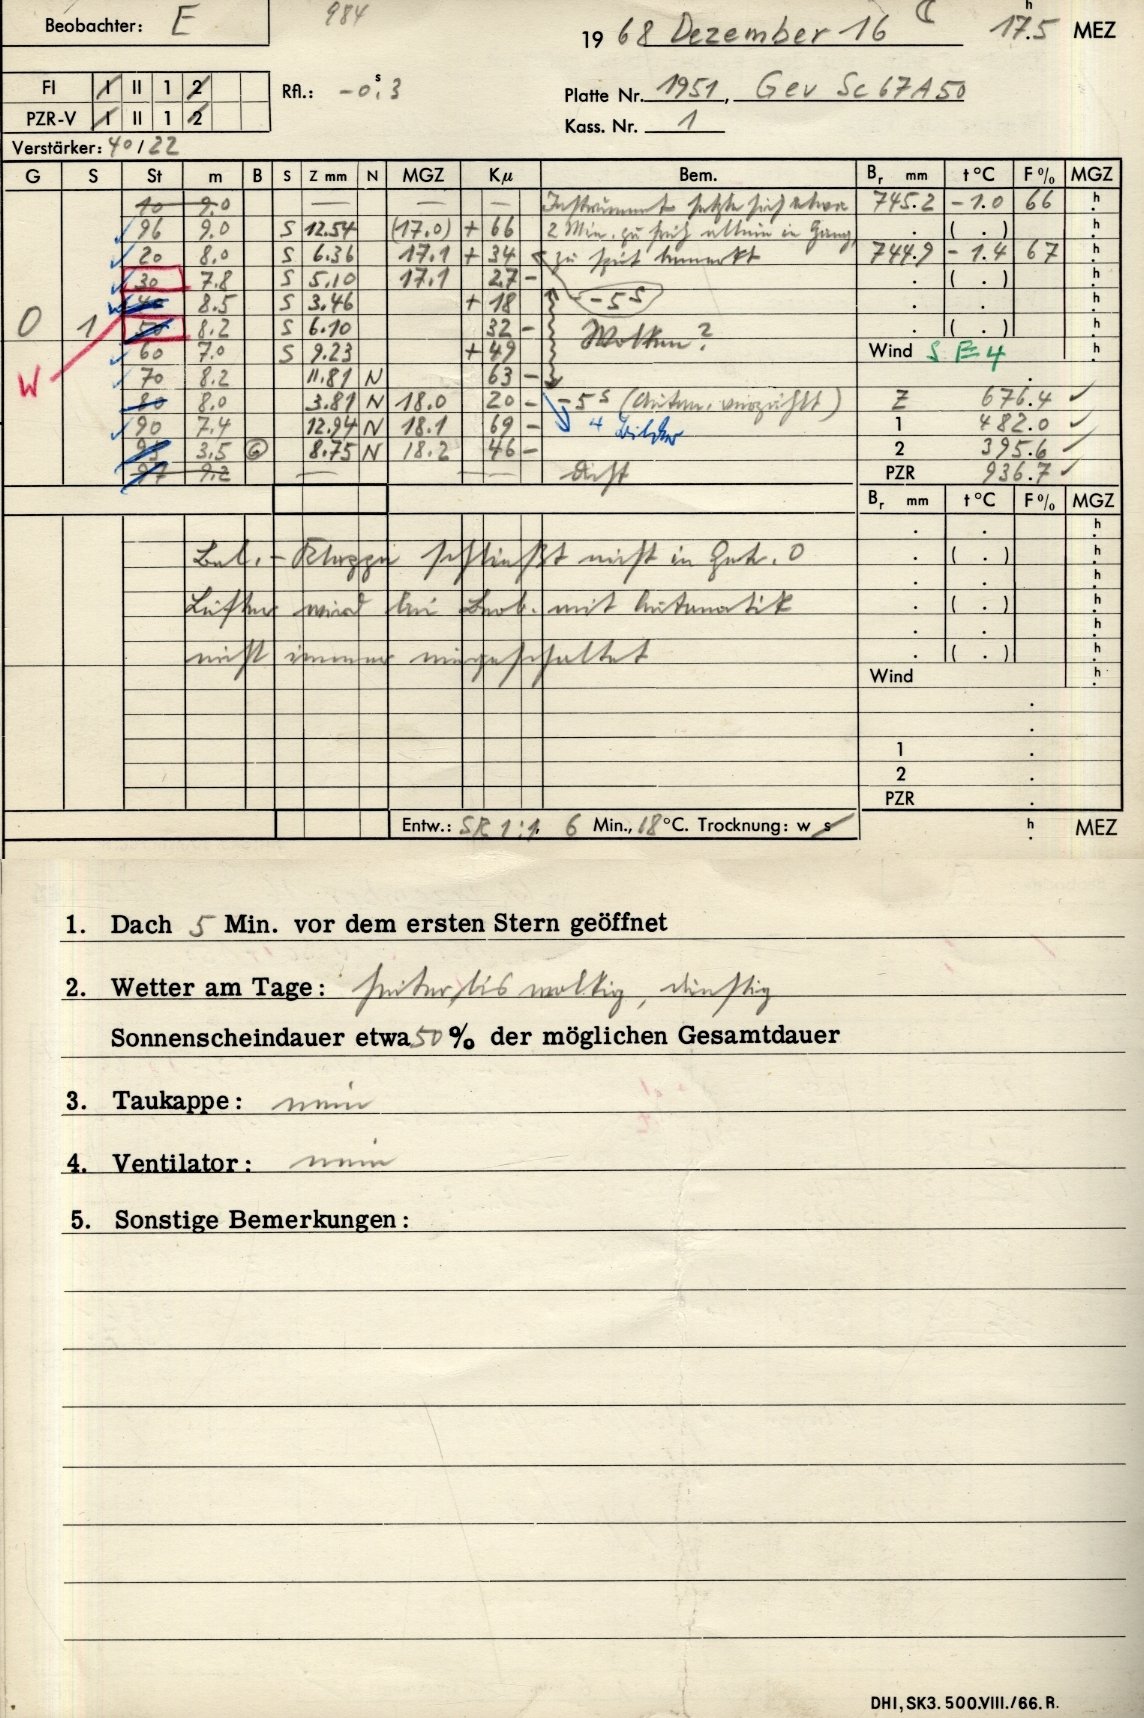 Beobachter: E 984
1968 Dezember 16 ☾ 17.5 h MEZ
FI I II 1 2 Rfl.: -0.3 s
Platte Nr. 1951, Gev Sc67A50
PZR-V I II 1 2
Kass. Nr. 1
Verstärker: 40/22
G S St m B S Z mm N MGZ Kµ Bem. Br mm t °C F % MGZ
10 9.0 — — — Instrument setzte sich etwa 745.2 -1.0 66 h
96 9.0 S 12.54 (17.0) + 66 2 Min. zu früh allein in Gang, . ( . )
20 8.0 S 6.36 17.1 + 34 zu spät bemerkt 744.9 - 1.4 67 h
30 7.8 S 5.10 17.1 27 - . ( . )
40 8.5 S 3.46 + 18 -5 s h
0 1 50 8.2 S 6.10 32 - Wolken? . ( . )
60 7.0 S 9.23 + 49 Wind SE4 h
W 70 8.2 11.81 N 63 -
80 8.0 3.81 N 18.0 20 - -5 s (Autom. verzählt) Z 676.4 ✓
90 7.4 12.94 N 18.1 69 - 4 Bilder 1 482.0 ✓
95 3.5 G 8.75 N 18.2 46 - 2 395.6 ✓
97 9.2 — — dicht PZR 936.7 ✓
Br mm t °C F % MGZ
Bel.-Klappe schließt nicht in Getr. 0
Lüfter wird bei Beob. mit Automatik
nicht immer eingeschaltet
Wind h
1 .
2 .
PZR .
Entw.: SR 1:1, 6 Min., 18 °C. Trocknung: w s h MEZ
1. Dach 5 Min. vor dem ersten Stern geöffnet
2. Wetter am Tage: heiter bis wolkig, dunstig
Sonnenscheindauer etwa 50 % der möglichen Gesamtdauer
3. Taukappe: nein
4. Ventilator: nein
5. Sonstige Bemerkungen:
DHI, SK3. 500.VIII./66. R.